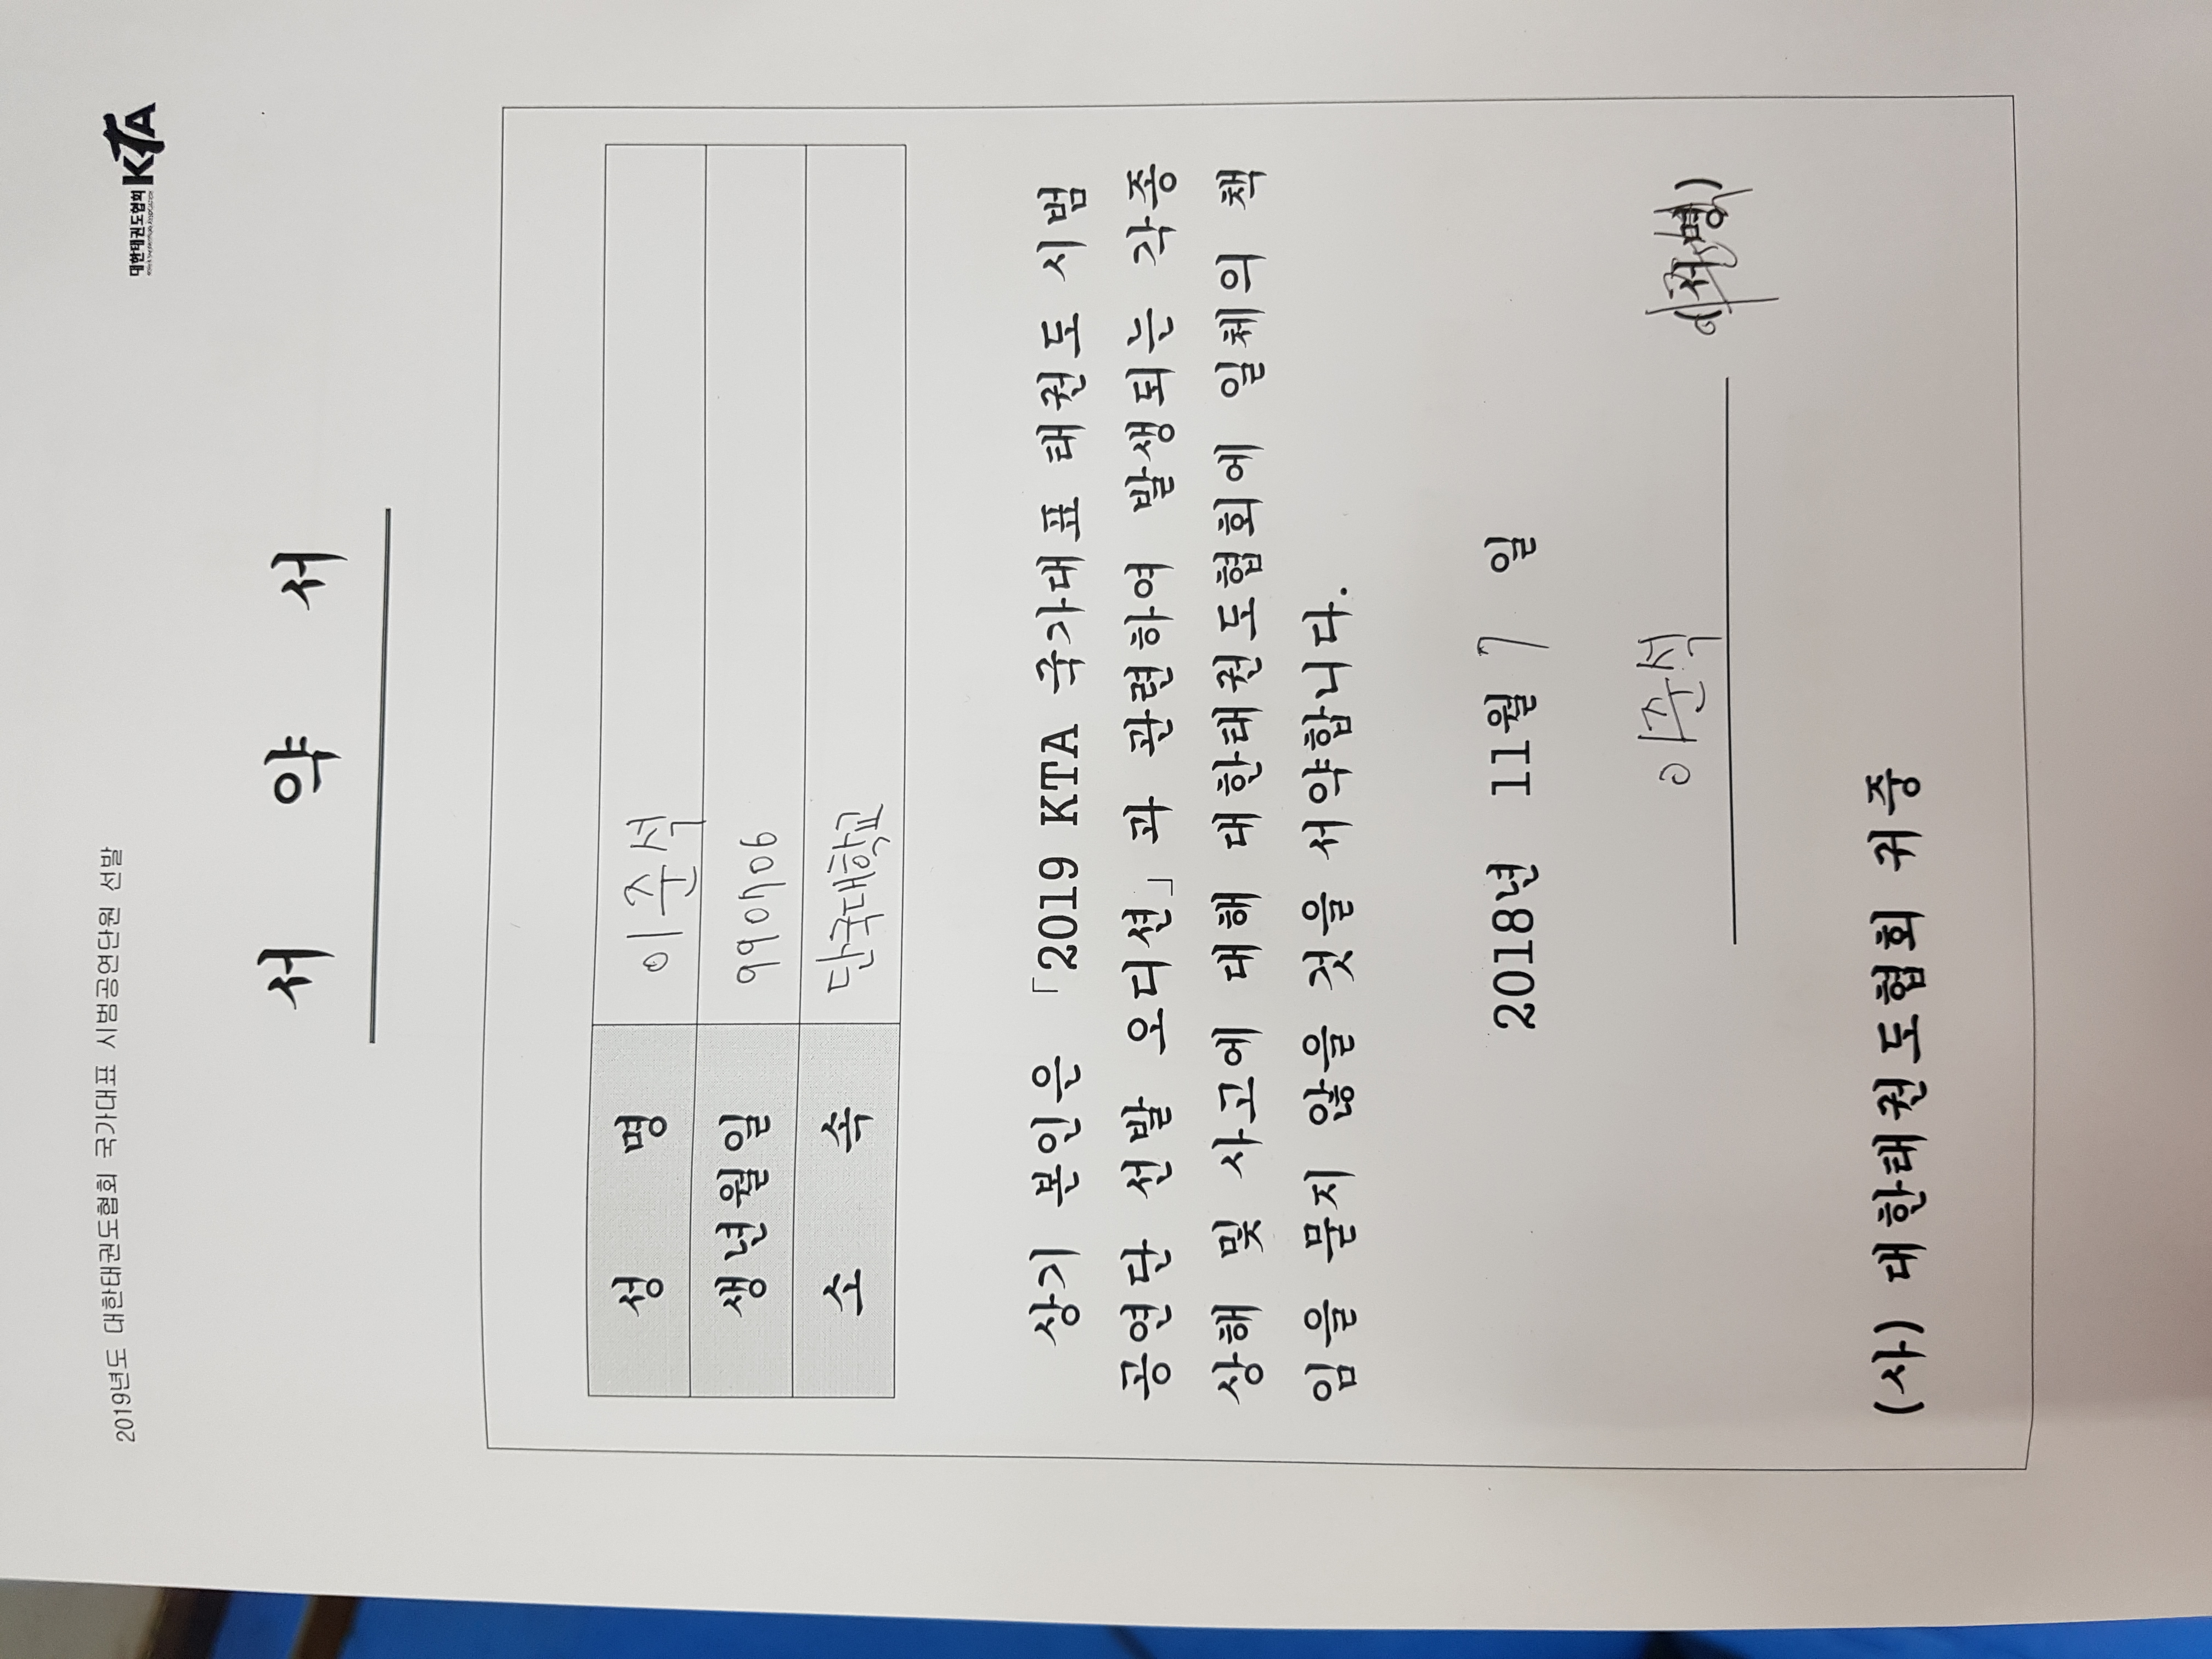 2019년도 대한태권도협회 국가대표 시범공연단원 선발
대한태권도협회 KTA
서 약 서
성 명 이준석
생년월일 990706
소 속 단국대학교
상기 본인은 「2019 KTA 국가대표 태권도 시범
공연단 선발 오디션」과 관련하여 발생되는 각종
상해 및 사고에 대해 대한태권도협회에 일체의 책
임을 묻지 않을 것을 서약합니다.
2018년 11월 7 일
이준석 (서명)
(사) 대한태권도협회 귀중